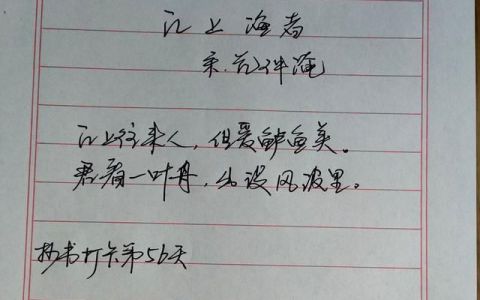 江上渔者
宋.范仲淹
江上往来人，但爱鲈鱼美。
君看一叶舟，出没风波里。
抄书打卡第56天